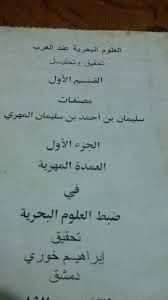 العلوم البحرية عند العرب
تحقيق وتحليل
القسم الأول
مصنفات
سليمان بن أحمد بن سليمان المهري
الجزء الأول
العمدة المهرية
في
ضبط العلوم البحرية
تحقيق
إبراهيم خوري
دمشق